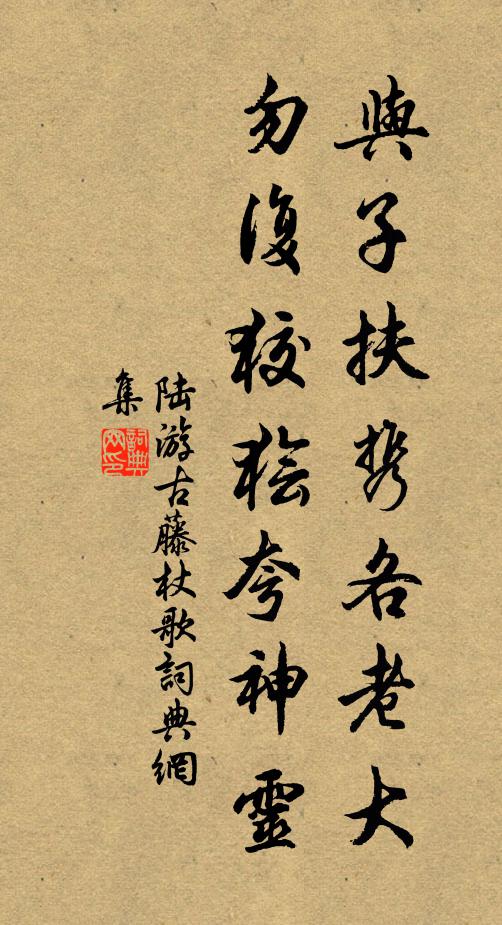 與子扶携各老大
勿復狡獪夸神靈
陆游古藤杖歌詞典網
集
詞典网印